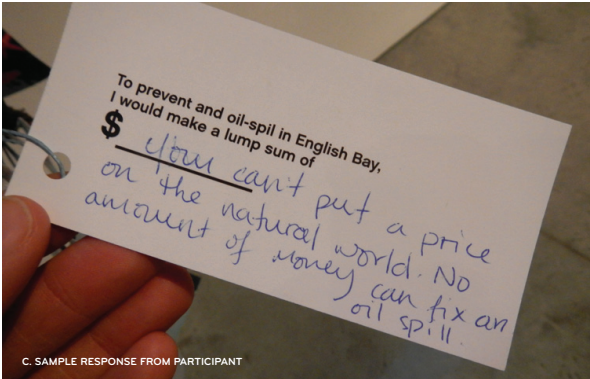 To prevent and oil-spil in English Bay,
I would make a lump sum of
$ You can't put a price
on the natural world. No
amount of money can fix an
oil spill.
C. SAMPLE RESPONSE FROM PARTICIPANT